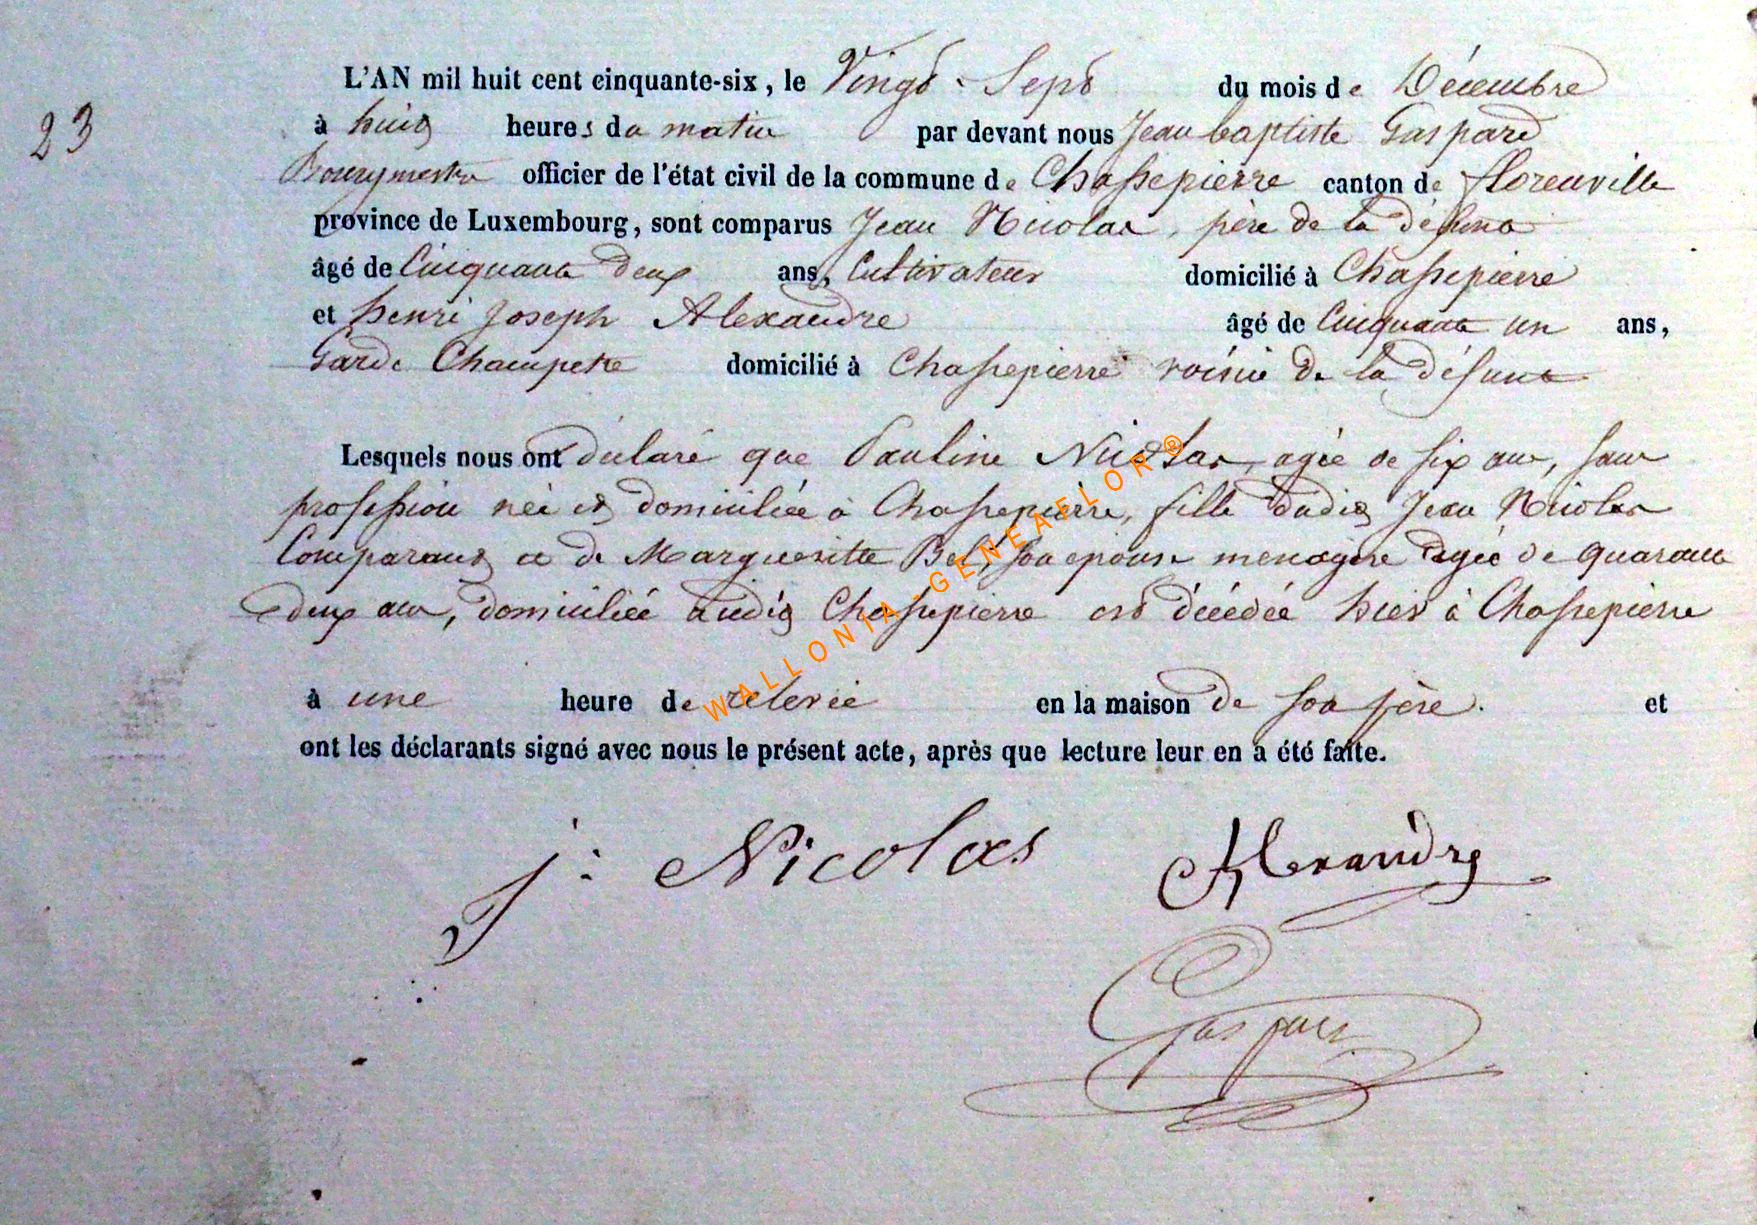 23
L'AN mil huit cent cinquante-six, le Vingt-Sept du mois de Décembre
à huit heures du matin par devant nous Jean baptiste Gaspard
Bourgmestre officier de l'état civil de la commune de Chassepierre canton de florenville
province de Luxembourg, sont comparus Jean Nicolas, père de la défunte
âgé de Cinquante deux ans, Cultivateur domicilié à Chassepierre
et henri Joseph Alexandre âgé de Cinquante un ans,
Garde Champetre domicilié à Chassepierre voisin de la défunte
Lesquels nous ont déclaré que Pauline Nicolas, agée de six ans, sans
profession née et domiciliée à Chassepierre, fille dudit Jean Nicolas
Comparant et de Margueritte son epouse menagere agée de quarante
deux ans, domiciliée audit Chassepierre est décédée hier à Chassepierre
à une heure de relevée en la maison de son père. et
ont les déclarants signé avec nous le présent acte, après que lecture leur en a été faite.
j: Nicolas Alexandre
Gaspard
WALLONIA-GENEAFLOR®